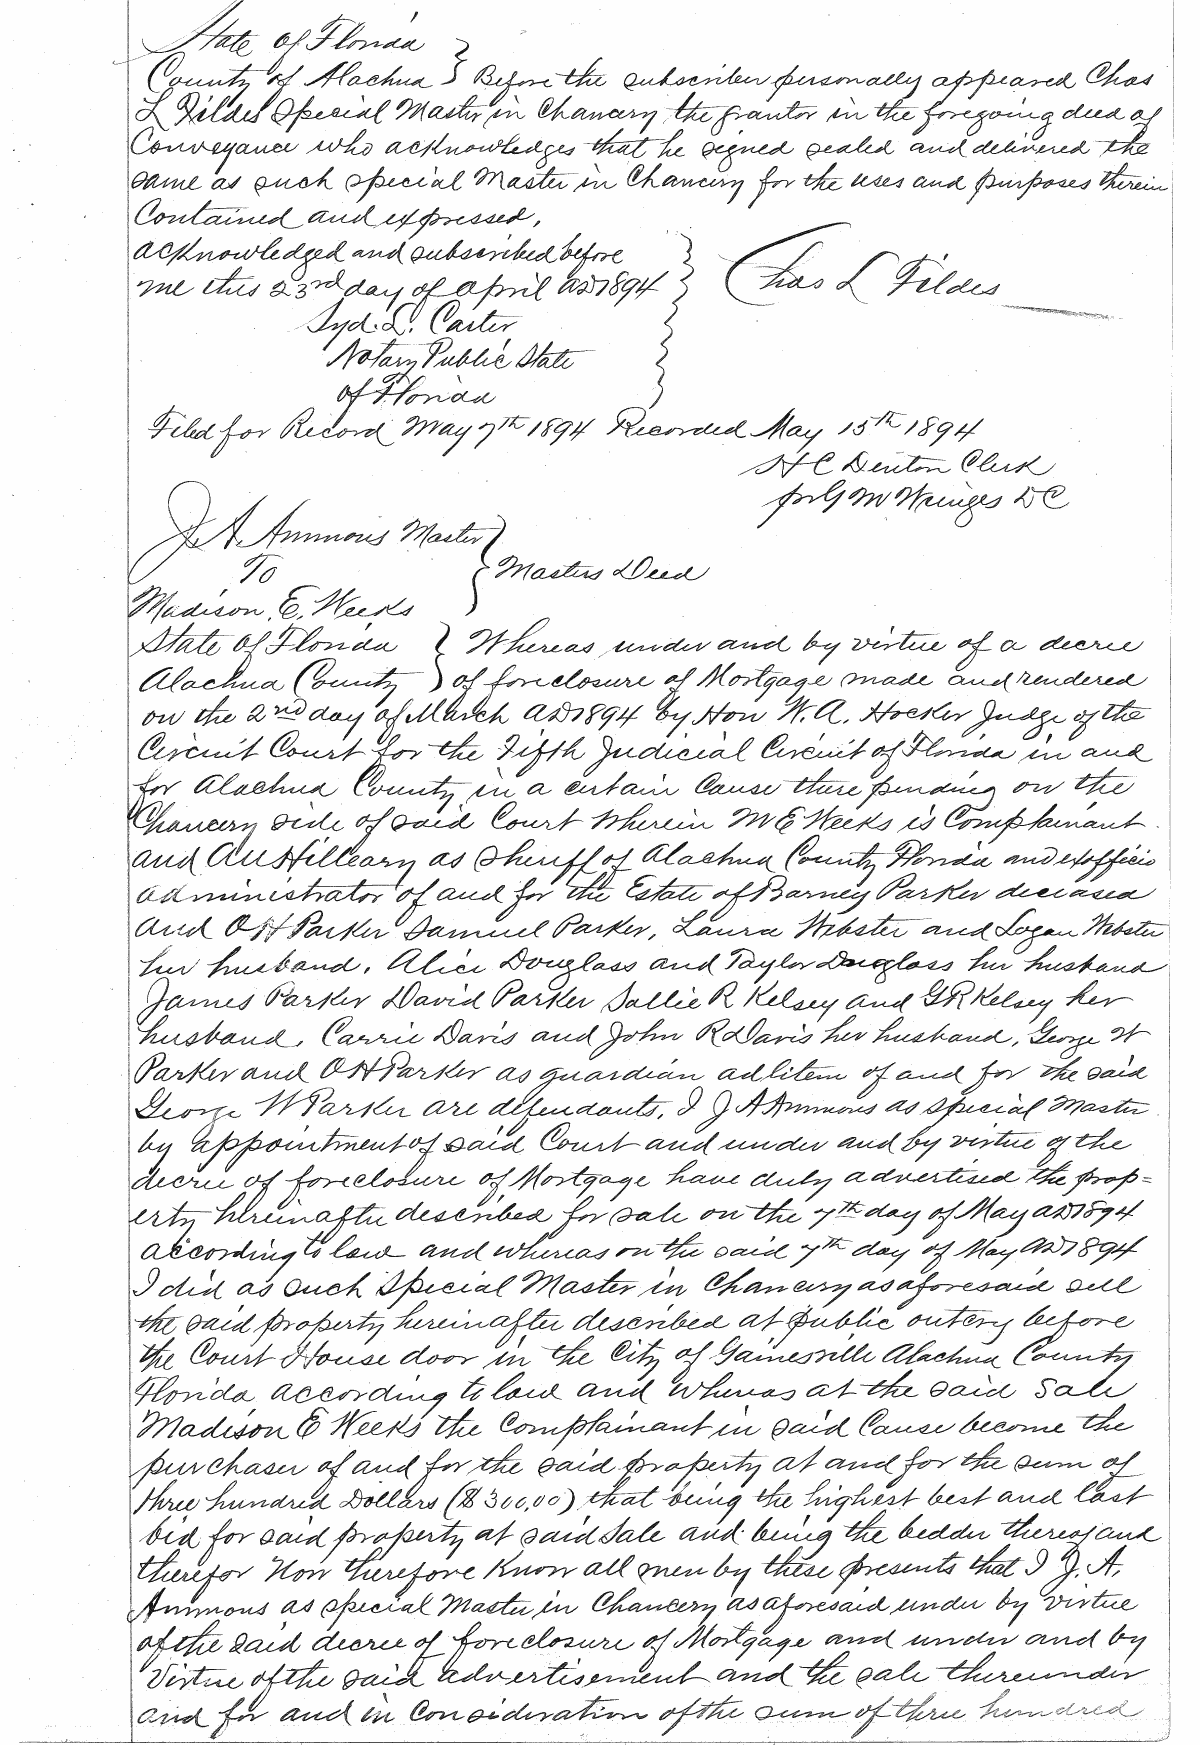 State of Florida
County of Alachua } Before the subscriber personally appeared Chas
L Fildes Special Master in Chancery the grantor in the foregoing deed of
Conveyance who acknowledges that he signed sealed and delivered the
same as such special Master in Chancery for the uses and purposes therein
Contained and expressed,
acknowledged and subscribed before
me this 23rd day of April AD1894 } Chas L Fildes
Syd. L. Carter
Notary Public State
of Florida
Filed for Record May 7th 1894 Recorded May 15th 1894
H C Denton Clerk
pr G M Winges DC
J A Ammons Master
To } Masters Deed
Madison E. Weeks
State of Florida } Whereas under and by virtue of a decree
Alachua County } of foreclosure of Mortgage made and rendered
on the 2nd day of March AD1894 by Hon W. A. Hocker Judge of the
Circuit Court for the Fifth Judicial Circuit of Florida in and
for Alachua County in a certain Cause there pending on the
Chancery side of said Court Wherein M E Weeks is Complainant
and Hilleary as Sheriff of Alachua County Florida and exofficio
administrator of and for the Estate of Barney Parker deceased
and O H Parker Samuel Parker, Laura Webster and Logan Webster
her husband, Alice Douglass and Taylor Douglass her husband
James Parker David Parker Sallie R Kelsey and G R Kelsey her
husband, Carrie Davis and John R Davis her husband, George W
Parker and O H Parker as guardian adlitem of and for the said
George W Parker are defendants, I J A Ammons as special Master
by appointment of said Court and under and by virtue of the
decree of foreclosure of Mortgage have duly advertised the prop=
erty hereinafter described for sale on the 7th day of May AD1894
according to law and whereas on the said 7th day of May AD1894
I did as such Special Master in Chancery as aforesaid sell
the said property hereinafter described at public outcry before
the Court House door in the City of Gainesville Alachua County
Florida, according to law and Whereas at the said Sale
Madison E Weeks the Complainant in said Cause become the
purchaser of and for the said property at and for the sum of
three hundred Dollars ($300,00) that being the highest best and last
bid for said property at said Sale and being the bedder thereof and
therefor Now therefore Know all men by these presents that I J. A.
Ammons as special Master in Chancery as aforesaid under by virtue
of the said decree of foreclosure of Mortgage and under and by
Virtue of the said advertisement and the sale thereunder
and for and in Consideration of the sum of three hundred